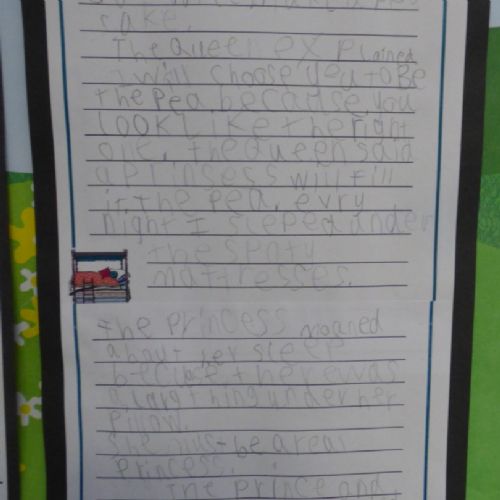 cake.
The Queen explained
I will choose you to Be
the pea because you
look Like the right
one. the Queen said
a prinsess will fill
it the pea. evry
night I sleped under
the spaty
mattresses.
the princess moaned
about her sleep
because there was
a larg thing under her
pillow.
She must be a real
princess.
The prince and